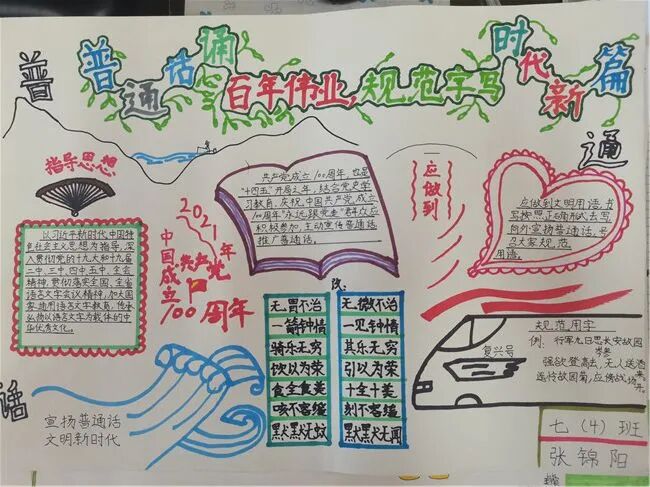 普
普通话诵百年伟业,规范字写时代新篇
通
话
指导思想
以习近平新时代中国特
色社会主义思想为指导,深
入贯彻党的十九大和十九届
二中、三中、四中、五中、全会
精神,贯彻落实全国、全省
语言文字会议精神,加大国
家通用语言文字教育,传承
弘扬以语言文字为载体的中
华优秀文化。
2021年
中国共产党
成立100周年
共产党成立100周年,也是
"十四五"开局之年,结合党史学
习教育,庆祝中国共产党成立
100周年"永远跟党走"群众应
积极参加,主动宣传普通话
推广普通话。
应做到
应做到文明用语,书
写按照正确形式去写
向外宣扬普通话,号
召大家规范
用语。
改:
无胃不治 无微不治
一箭钟情 一见钟情
骑乐无穷 其乐无穷
饮以为荣 引以为荣
食全食美 十全十美
咳不容缓 刻不容缓
默默无蚊 默默无闻
复兴号
规范用字
例:行军九日思长安故园
岑参
强欲登高去,无人送酒来
遥怜故园菊,应傍战场开。
宣扬普通话
文明新时代
七(4)班
张锦阳